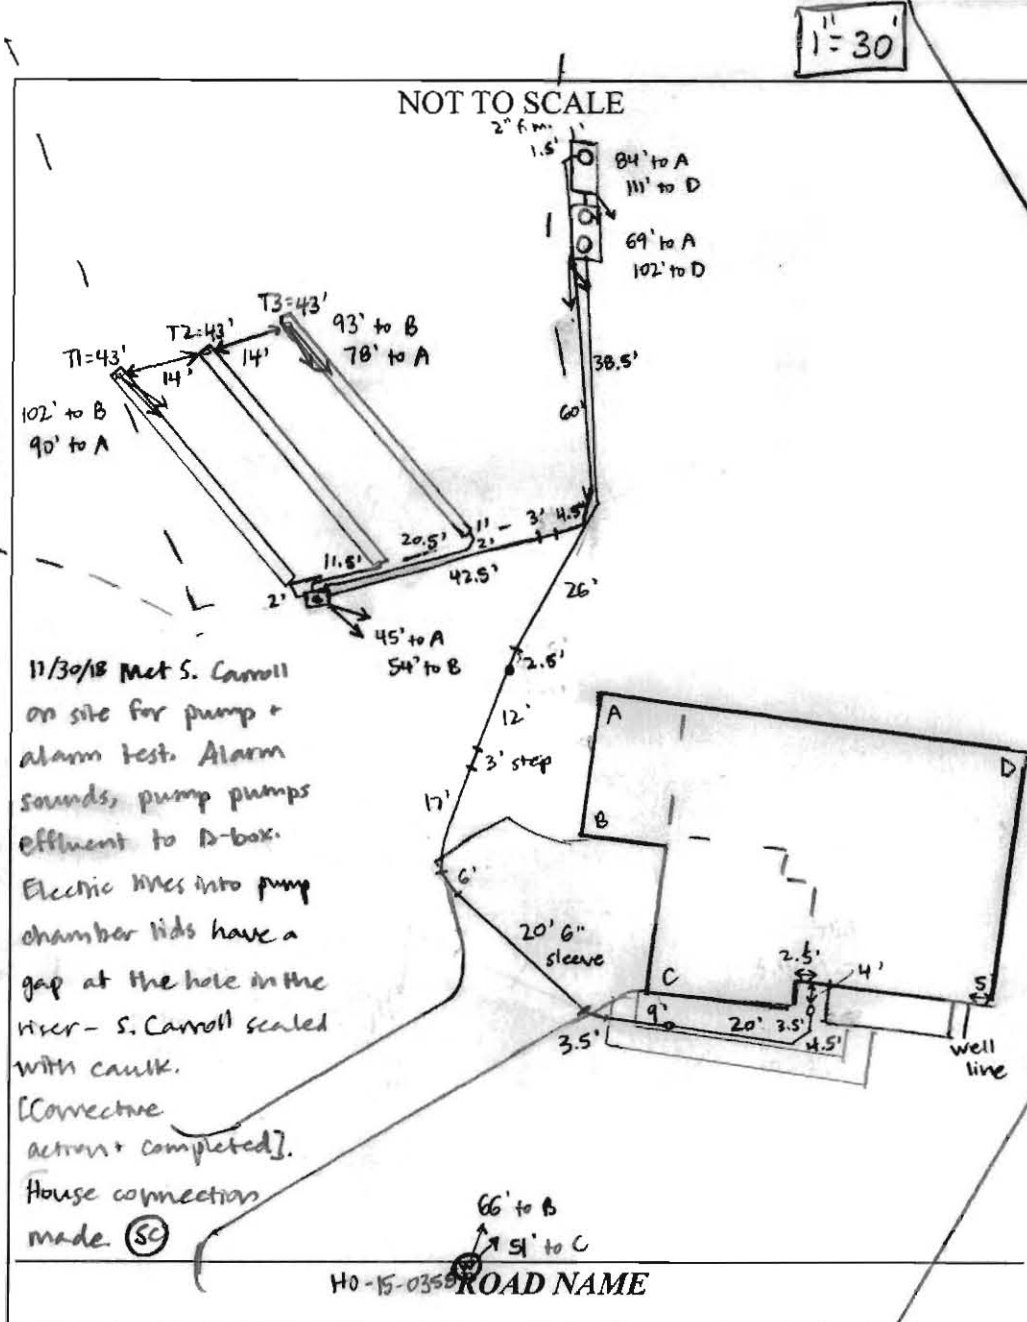 1"=30'
NOT TO SCALE
2" f.m.
1.5'
84' to A
111' to D
69' to A
102' to D
T3=43'
T2=43'
T1=43'
14'
14'
93' to B
78' to A
102' to B
90' to A
38.5'
60'
3' 4.5'
1'
2'
20.5'
11.5'
42.5'
2'
26'
45' to A
54' to B
2.5'
12'
3' step
17'
6'
20' 6"
sleeve
A
B
C
D
2.5'
4'
5
9'
20'
3.5'
4.5'
3.5'
well
line
11/30/18 Met S. Carroll
on site for pump +
alarm test. Alarm
sounds, pump pumps
effluent to D-box.
Electric lines into pump
chamber lids have a
gap at the hole in the
riser - S. Carroll sealed
with caulk.
[Corrective
action completed].
House connection
made. SC
66' to B
51' to C
W
HO-15-0355
ROAD NAME